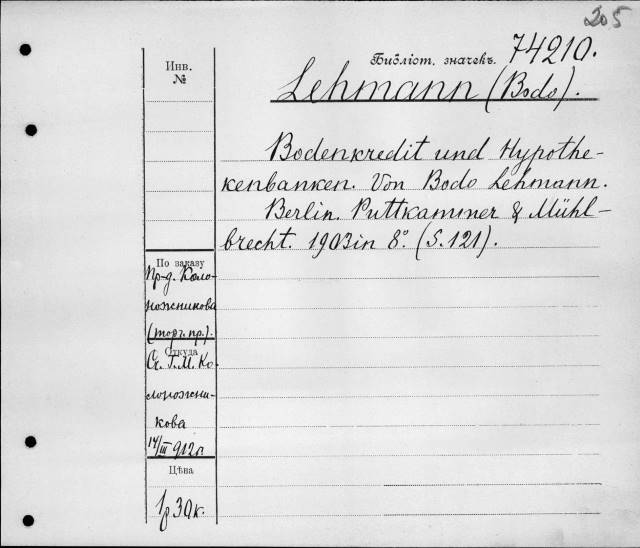 205
Библіот. значекъ 74210.
Инв.
№
Lehmann (Bodo).
Bodenkredit und Hypothe-
kenbanken. Von Bodo Lehmann.
Berlin. Puttkammer & Mühl-
brecht. 1903 in 8°. (S. 121).
По заказу
Пр-д. Коло-
ножникова
(торг. пр.).
Откуда
Ск. Г. М. Ко-
лоножни-
кова
14/III 912 г.
Цѣна
1 р 30 к.